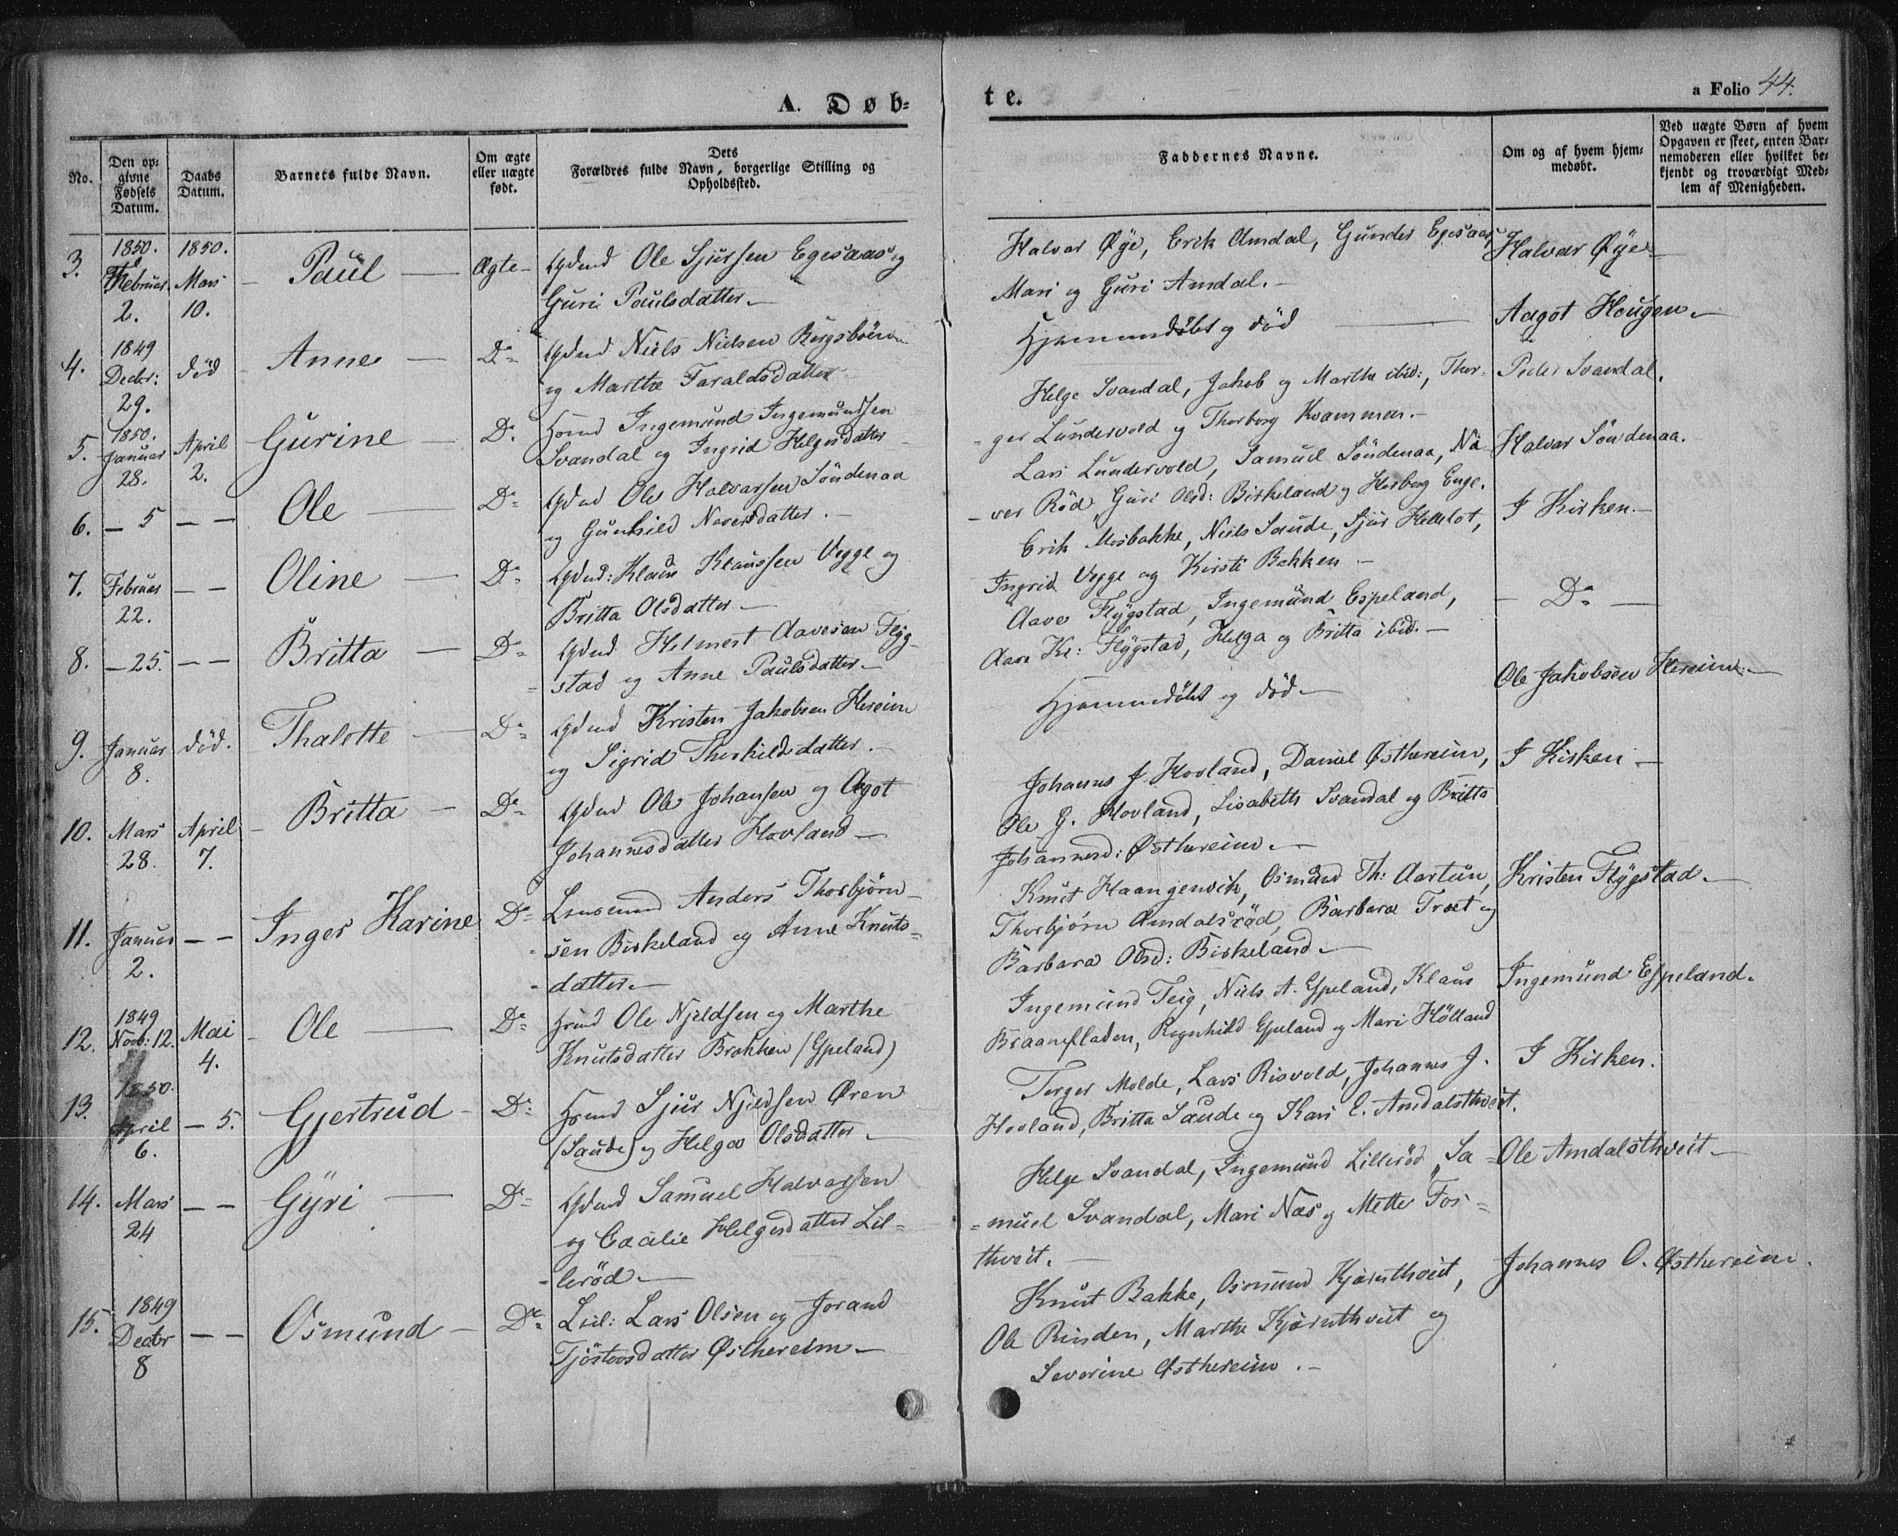 A. Døb-
te.
a Folio 44.
No.
Den op-
givne
Fødsels
Datum.
Daabs
Datum.
Barnets fulde Navn.
Om ægte
eller uægte
født.
Dets
Forældres fulde Navn, borgerlige Stilling og
Opholdssted.
Faddernes Navne.
Om og af hvem hjem-
medøbt.
Ved uægte Børn af hvem
Opgaven er skeet, enten Bar-
nemoderen eller hvilket be-
kjendt og troværdigt Med-
lem af Menigheden.
3.
1850.
Februar
2.
1850.
Mars
10.
Paul
Ægte
Gdmd Ole Sjursen Egesaas og
Guri Paulsdatter.
Halvar Øye, Erik Amdal, Gunder Egesaas,
Mari og Guri Amdal.
Halvar Øye
4.
1849
Decbr:
29.
død
Anne
Do
Gdmd Niels Nielsen
og Marthe Faraldsdatter
Hjemmedøbt og død
Aagot Hougen.
5.
1850.
Januar
28.
April
2.
Gurine
Do
Hsmd Ingemund Ingemundsen
Svandal og Ingrid Helgesdatter
Helge Svandal, Jakob og Marthe ibid:, Thor-
ger Lundevold og Thorborg Kvammen.
Peder Svandal.
6.
- 5
- -
Ole
Do
Gdmd Ole Halvarsen Söndenaa
og Gunhild Naversdatter.
Lars Lundervold, Samuel Söndenaa, Na-
ver Röd, Guri Olsd: Birkeland og Herborg Enge.
Halvar Söndenaa.
7.
Februar
22.
- -
Oline
Do
Gdmd: Klaus Klaussen Vegge og
Britta Olsdatter
Erik Mosbakke, Niels Saude, Sjur Hellelot,
Ingrid Vegge og Kirsti Bakken
I Kirken.
8.
- 25.
- -
Britta
Do
Gdmd Helmert Aavesen Flyg-
stad og Anne Paulsdatter
Aave Flygstad, Ingemund Espeland,
Aave Kr: Flygstad, Helga og Britta ibid.
Do
9.
Januar
8.
død.
Thalette
Do
Gdmd Kristen Jakobsen Hereim
og Sigrid Thorkildsdatter.
Hjemmedøbt og død.
Ole Jakobsen Hereim.
10.
Mars
28.
April
7.
Britta
Do
Gdmd Ole Johansen og Agot
Johannesdatter Hovland
Johannes J. Hovland, Daniel Østhereim,
Ole G. Hovland, Lisabeth Svandal og Britta
Johannesd: Østhereim.
I Kirken
11.
Januar
2.
- -
Inger Karine
Do
Anders Thorbjørn-
sen Birkeland og Anne Knuts-
datter.
Knut Haangenvik, Osmund Th: Aartun,
Thorbjørn Amdalsrød, Barbara Træt og
Barbara Olsd: Birkeland
Kristen Flygstad
12.
1849
Novb: 12.
Mai
4.
Ole
Do
Hsmd Ole Njeldsen og Marthe
Knutsdatter Brekken (Espeland)
Ingemund Teig, Niels A. Espeland, Klaus
Braanefladen, Ragnhild Espeland og Mari Hölland
Ingemund Espeland.
13.
1850.
April
6.
- 5.
Gjertrud
Do
Hsmd Sjur Njeldsen Øren
(Saude) og Helga Olsdatter
Torger Molde, Lars Risvold, Johannes J.
Hovland, Britta Saude og Kari E. Amdalsthveit.
I Kirken.
14.
Mars
24
- -
Gyri
Do
Gdmd Samuel Halvarsen
og Cæcilie Helgesdatter Lil-
lerød.
Helge Svandal, Ingemund Lillerød, Sa-
muel Svandal, Mari Næs og Mette Fos-
thveit.
Ole Amdalsthveit
15.
1849
Decbr
8
- -
Osmund
Do
Lars Olsen og Jorand
Tjöstovsdatter Østhereim
Knut Bakke, Osmund Kjørnthveit,
Ole Rinden, Marthe Kjørnthveit og
Severine Østhereim.
Johannes O. Østhereim.